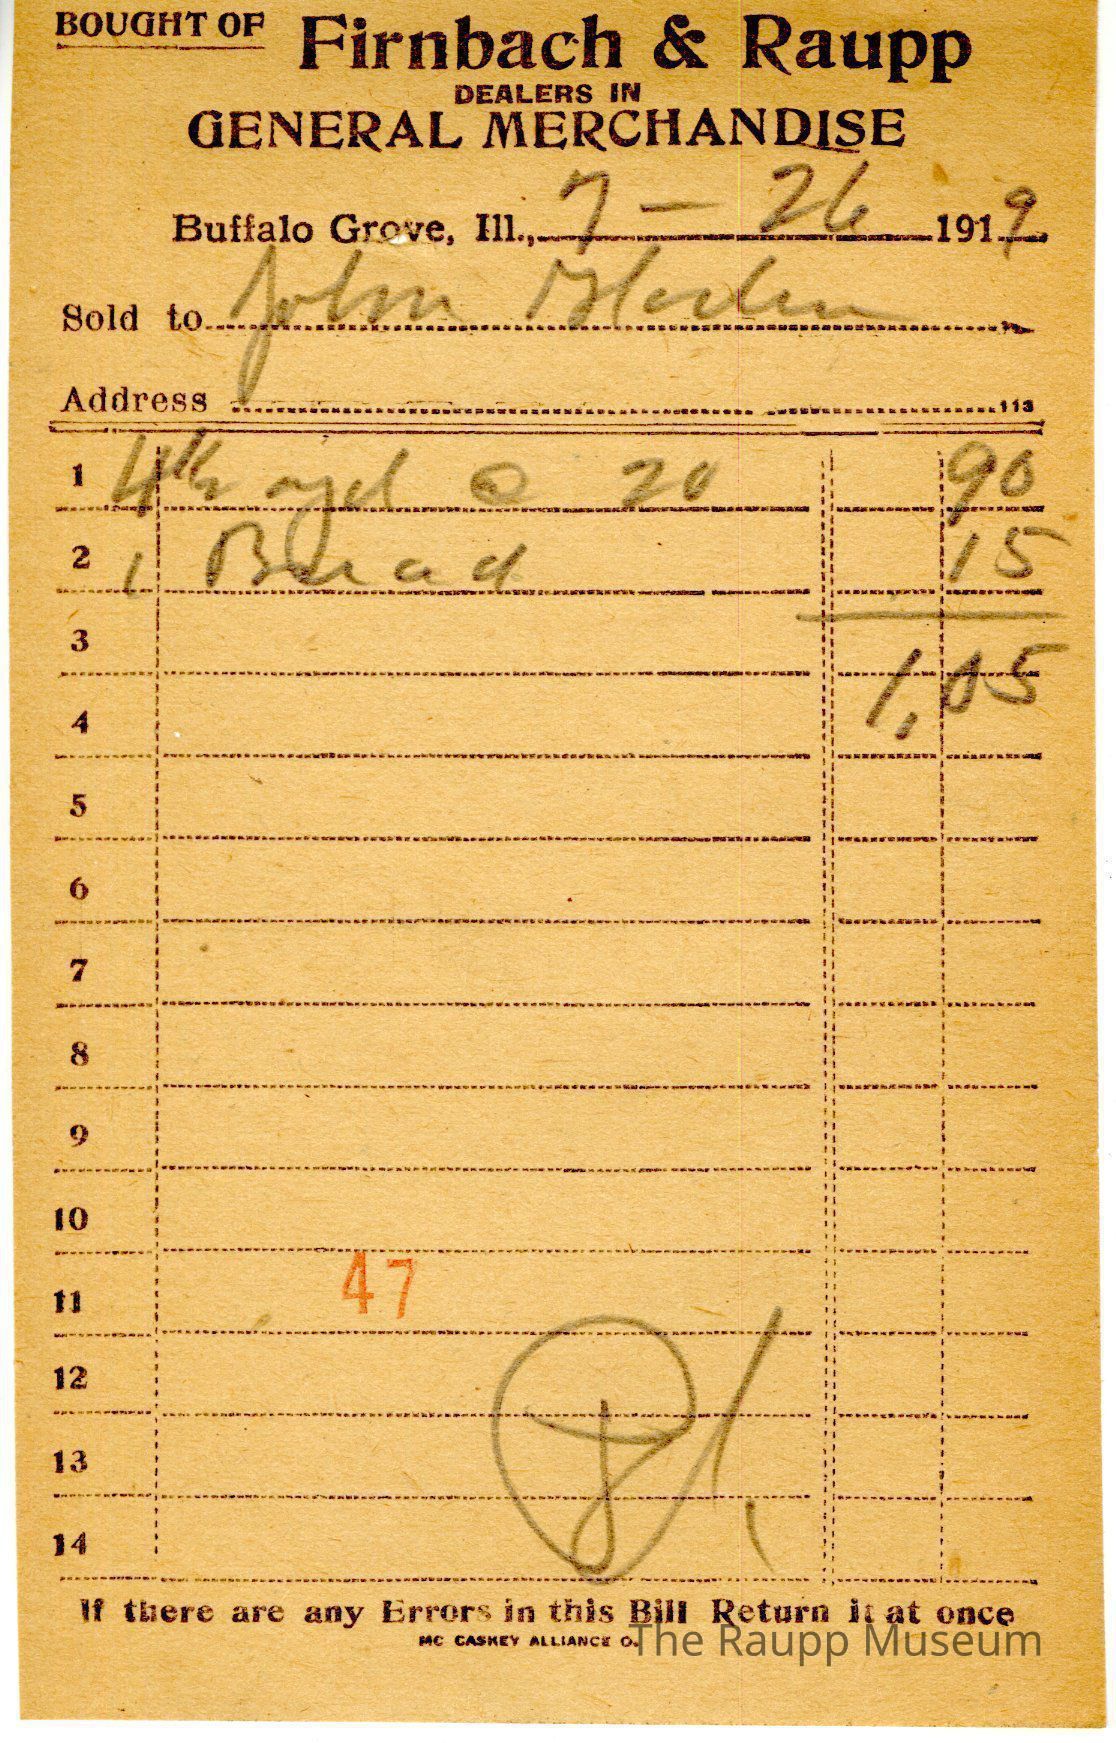 BOUGHT OF Firnbach & Raupp
DEALERS IN
GENERAL MERCHANDISE
Buffalo Grove, Ill., 7 - 26 1919
Sold to John
Address 113
1 4½ yd @ 20 90
2 1 Bread 15
3
1,05
4
5
6
7
8
9
10
47
11
12
13
14
If there are any Errors in this Bill Return it at once
MC CASKEY ALLIANCE O.
The Raupp Museum